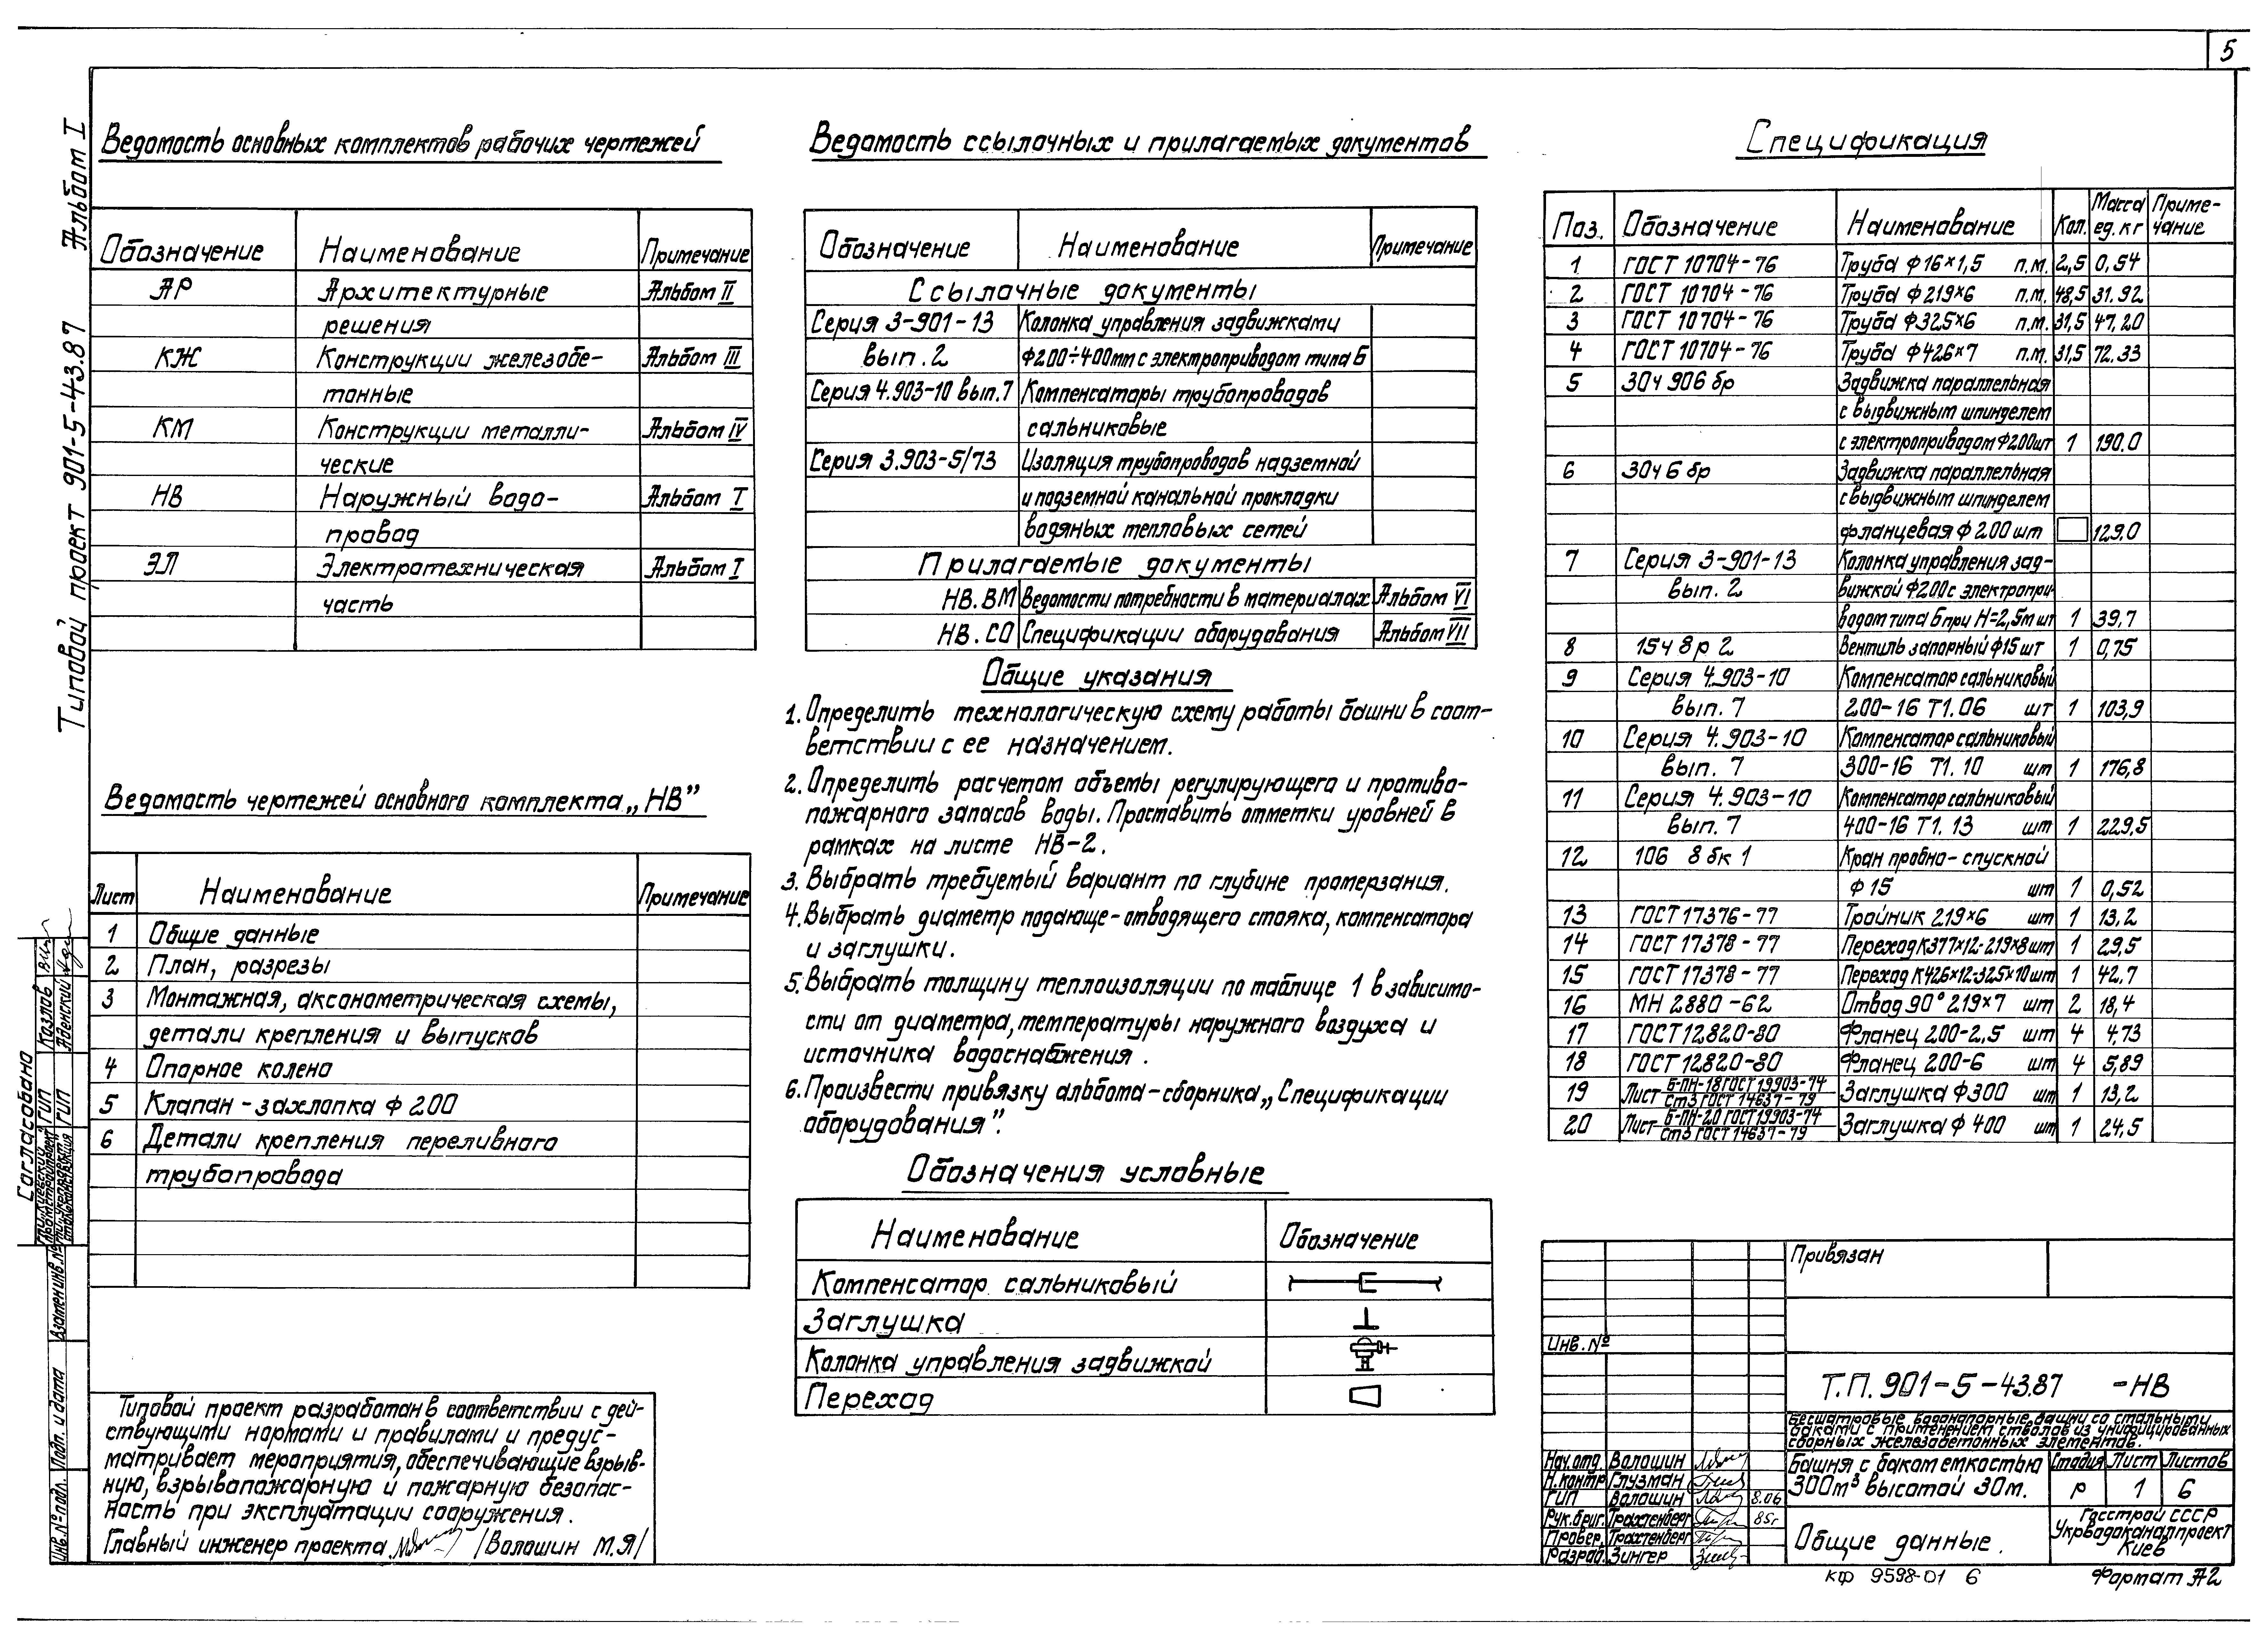 5
Альбом I
Типовой проект 901-5-43.87
Ведомость основных комплектов рабочих чертежей
Обозначение Наименование Примечание
АР Архитектурные Альбом II
решения
КЖ Конструкции железобе- Альбом III
тонные
КМ Конструкции металли- Альбом IV
ческие
НВ Наружный водо- Альбом I
провод
ЭЛ Электротехническая Альбом I
часть
Ведомость чертежей основного комплекта „НВ”
Лист Наименование Примечание
1 Общие данные
2 План, разрезы
3 Монтажная, аксонометрическая схемы,
детали крепления и выпусков
4 Опорное колено
5 Клапан-захлопка ф 200
6 Детали крепления переливного
трубопровода
Типовой проект разработан в соответствии с дей-
ствующими нормами и правилами и предус-
матривает мероприятия, обеспечивающие взрыв-
ную, взрывопожарную и пожарную безопас-
ность при эксплуатации сооружения.
Главный инженер проекта /Волошин М.Я/
Ведомость ссылочных и прилагаемых документов
Обозначение Наименование Примечание
Ссылочные документы
Серия 3-901-13 Колонка управления задвижками
вып. 2 ф200÷400мм с электроприводом типа Б
Серия 4.903-10 вып.7 Компенсаторы трубопроводов
сальниковые
Серия 3.903-5/73 Изоляция трубопроводов надземной
и подземной канальной прокладки
водяных тепловых сетей
Прилагаемые документы
НВ.ВМ Ведомости потребности в материалах Альбом VI
НВ.СО Спецификации оборудования Альбом VII
Общие указания
1. Определить технологическую схему работы башни в соот-
ветствии с ее назначением.
2. Определить расчетом объемы регулирующего и противо-
пожарного запасов воды. Проставить отметки уровней в
рамках на листе НВ-2.
3. Выбрать требуемый вариант по глубине промерзания.
4. Выбрать диаметр подающе-отводящего стояка, компенсатора
и заглушки.
5. Выбрать толщину теплоизоляции по таблице 1 в зависимо-
сти от диаметра, температуры наружного воздуха и
источника водоснабжения.
6. Произвести привязку альбома-сборника „Спецификации
оборудования”.
Обозначения условные
Наименование Обозначение
Компенсатор сальниковый
Заглушка
Колонка управления задвижкой
Переход
Спецификация
Поз. Обозначение Наименование Кол. Масса ед. кг Приме-чание
1 ГОСТ 10704-76 Труба ф16×1,5 п.м. 2,5 0,54
2 ГОСТ 10704-76 Труба ф219×6 п.м. 48,5 31.92
3 ГОСТ 10704-76 Труба ф325×6 п.м. 31,5 47,20
4 ГОСТ 10704-76 Труба ф426×7 п.м. 31,5 72.33
5 30ч 906 бр Задвижка параллельная
с выдвижным шпинделем
с электроприводом ф200 шт 1 190.0
6 30ч 6 бр Задвижка параллельная
с выдвижным шпинделем
фланцевая ф 200 шт 129.0
7 Серия 3-901-13 Колонка управления зад-
вып. 2 вижкой ф200 с электропри-
водом типа Б при Н=2,5м шт 1 39,7
8 15ч 8р 2 Вентиль запорный ф15 шт 1 0,75
9 Серия 4.903-10 Компенсатор сальниковый
вып. 7 200-16 Т1.06 шт 1 103,9
10 Серия 4.903-10 Компенсатор сальниковый
вып. 7 300-16 Т1.10 шт 1 176,8
11 Серия 4.903-10 Компенсатор сальниковый
вып. 7 400-16 Т1.13 шт 1 229,5
12 10б 8 бк 1 Кран пробно-спускной
ф 15 шт 1 0,52
13 ГОСТ 17376-77 Тройник 219×6 шт 1 13,2
14 ГОСТ 17378-77 Переход К377×12-219×8 шт 1 29,5
15 ГОСТ 17378-77 Переход К426×12-325×10 шт 1 42,7
16 МН 2880-62 Отвод 90° 219×7 шт 2 18,4
17 ГОСТ 12820-80 Фланец 200-2,5 шт 4 4,73
18 ГОСТ 12820-80 Фланец 200-6 шт 4 5,89
19 Лист Б-ПН-18 ГОСТ 19903-74 / Ст3 ГОСТ 14637-79 Заглушка ф300 шт 1 13,2
20 Лист Б-ПН-20 ГОСТ 19903-74 / Ст3 ГОСТ 14637-79 Заглушка ф 400 шт 1 24,5
Привязан
Инв. №
Т.П. 901-5-43.87 -НВ
Бесшатровые водонапорные башни со стальными
баками с применением стволов из унифицированных
сборных железобетонных элементов.
Нач.отд. Волошин
Н.контр Глузман
ГИП Волошин 8.06
Рук.бриг. Трахтенберг 85г
Провер. Трахтенберг
Разраб. Зингер
Башня с баком емкостью
300м³ высотой 30м.
Стадия Лист Листов
Р 1 6
Общие данные.
Госстрой СССР
Укрводоканалпроект
Киев
КФ 9598-01 6
Формат А2
Согласовано
ГИП Козлов
ГИП Яденский
Взамен инв.№
Подп. и дата
Инв.№ подл.